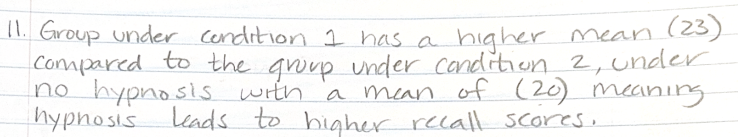 11. Group under condition 1 has a higher mean (23)
compared to the group under condition 2, under
no hypnosis with a mean of (20) meaning
hypnosis leads to higher recall scores.